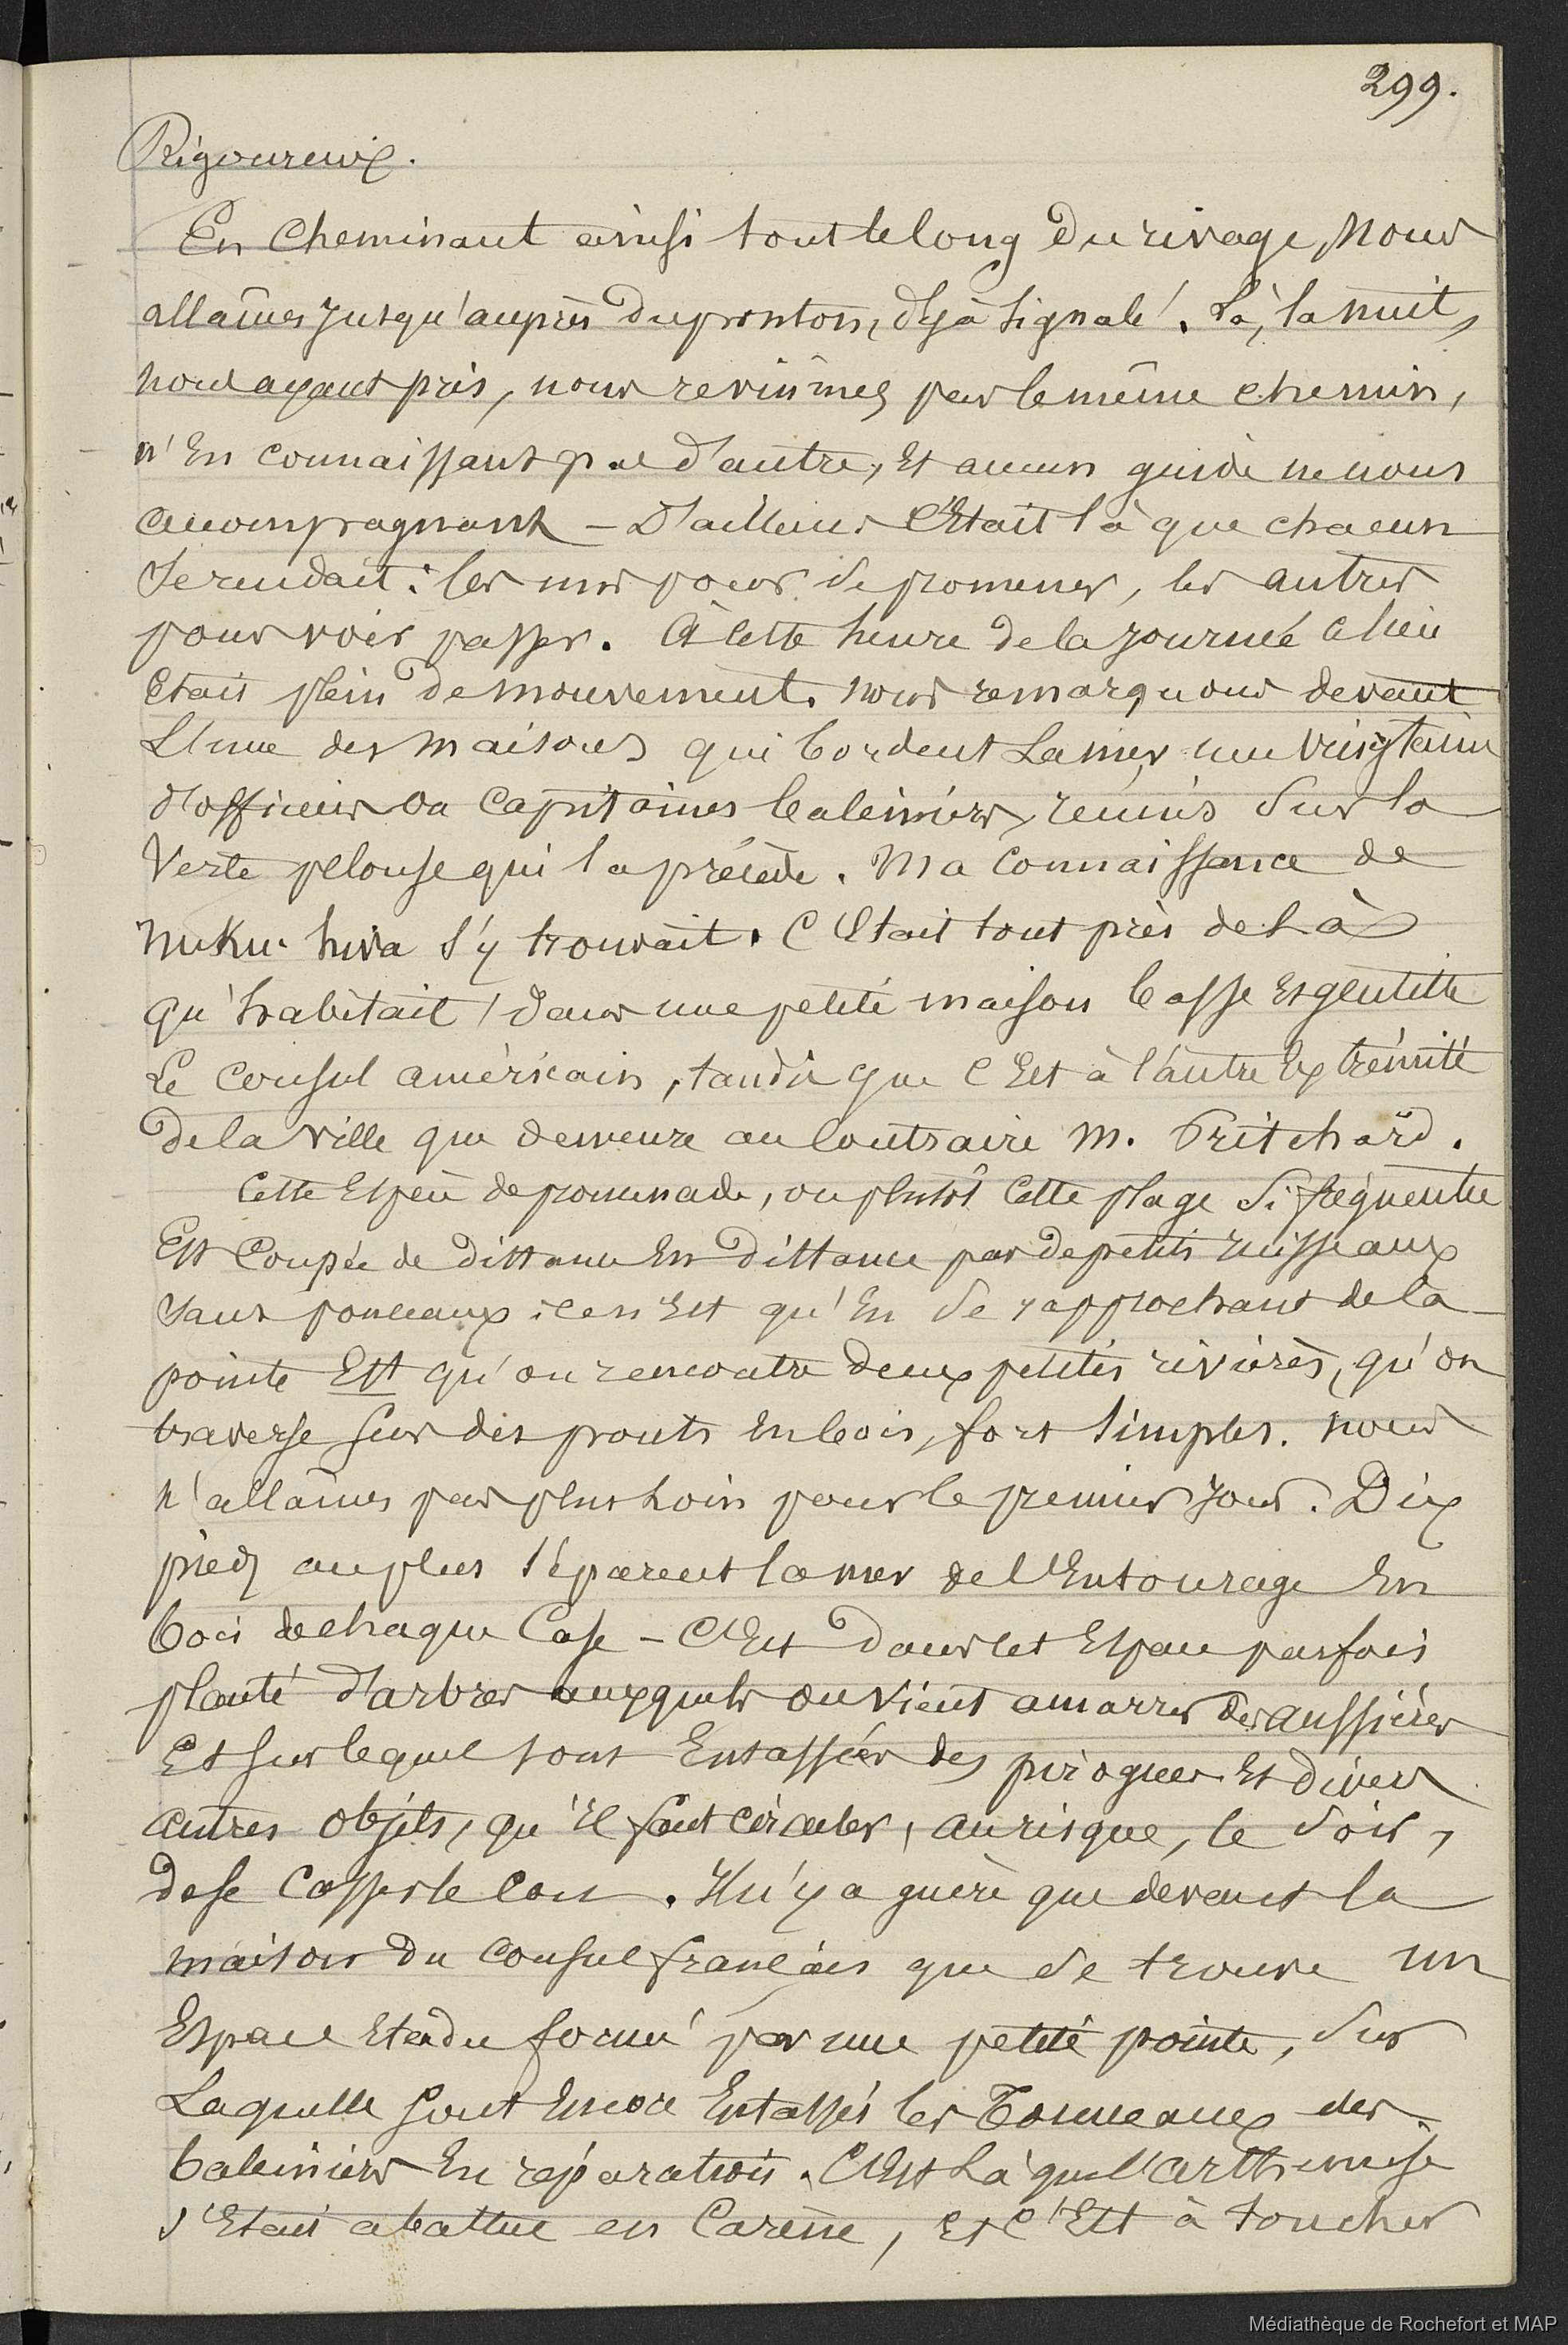 299.
Rigoureux.
En cheminant ainsi tout le long du rivage, nous
allâmes jusqu'auprès du ponton, déjà signalé. Là, la nuit,
nous ayant pris, nous revînmes par le même chemin,
n'en connaissant pas d'autre, et aucun guide ne nous
accompagnant - D'ailleurs c'était là que chacun
se rendait : les uns pour se promener, les autres
pour voir passer. À cette heure de la journée ce lieu
était plein de mouvement. nous remarquons devant
L'une des maisons qui bordent La mer une vingtaine
d'officiers ou capitaines baleiniers, réunis sur la
verte pelouse qui la précède. Ma connaissance de
nuku-hiva s'y trouvait. C'était tout près de Là
qu'habitait, dans une petite maison basse et gentille
Le consul américain, tandis que c'est à l'autre extrémité
de la ville que demeure au contraire M. Pritchard.
Cette espèce de promenade, ou plutôt cette plage si fréquentée
Est coupée de distance en distance par de petits ruisseaux
sans ponceaux : ce n'est qu'en se rapprochant de la
pointe Est qu'on rencontre deux petites rivières, qu'on
traverse sur des ponts en bois, fort simples. nous
n'allâmes pas plus Loin pour le premier jour. Dix
pieds au plus séparent la mer de l'entourage en
bois de chaque case - C'est dans cet espace parfois
planté d'arbres auxquels on vient amarrer des aussières
Et sur lequel sont entassées des pirogues et divers
autres objets, qu'il faut circuler, au risque, le soir,
de se casser le cou. Il n'y a guère que devant la
maison du consul français que se trouve un
Espace étendu formé par une petite pointe, sur
Laquelle sont encore entassés les Tonneaux des
baleiniers en réparation. C'est Là que l'arthémise
s'était abattue en carène, et c'est à toucher
Médiathèque de Rochefort et MAP